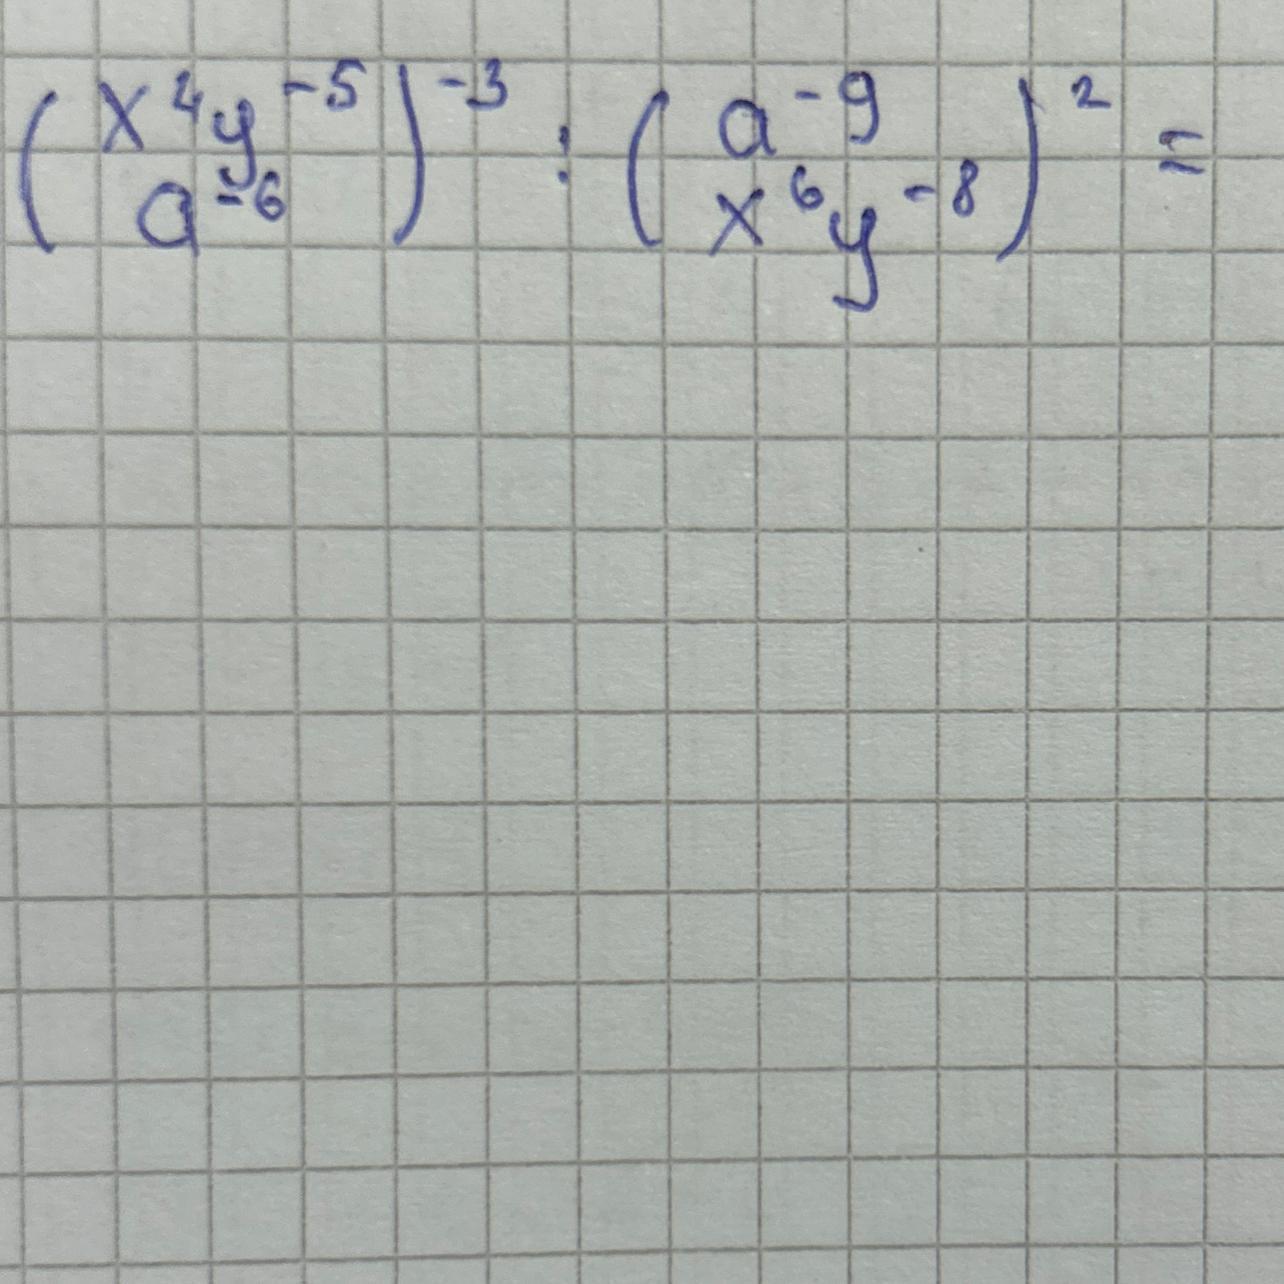 (x⁴y⁻⁵ / a⁻⁶)⁻³ : (a⁻⁹ / x⁶y⁻⁸)² =